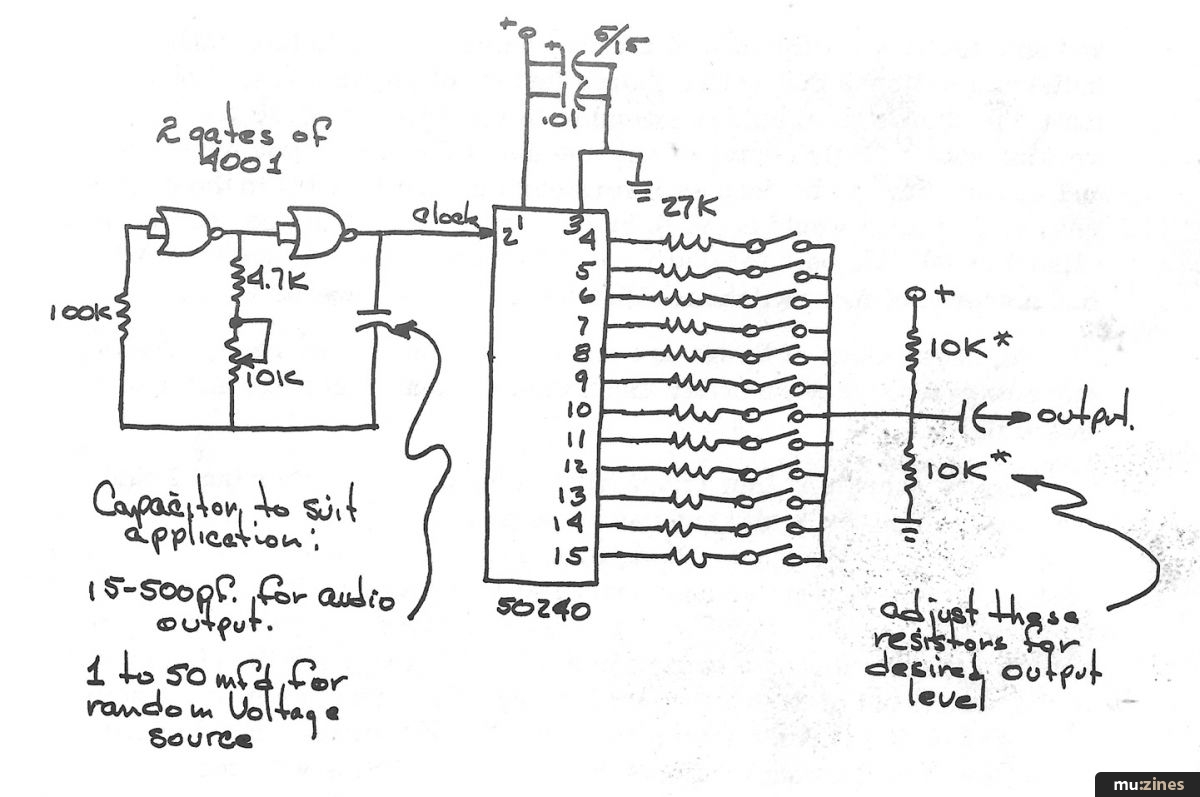 +
+
5/15
.01
2 gates of
4001
clock
27K
1
2
3
4
5
6
7
8
9
10
11
12
13
14
15
4.7K
100K
10K
+
10K*
output.
10K*
Capacitor, to suit
application:
15-500pf. for audio
output.
1 to 50 mfd, for
random Voltage
source
50240
adjust these
resistors for
desired output
level
mu:zines